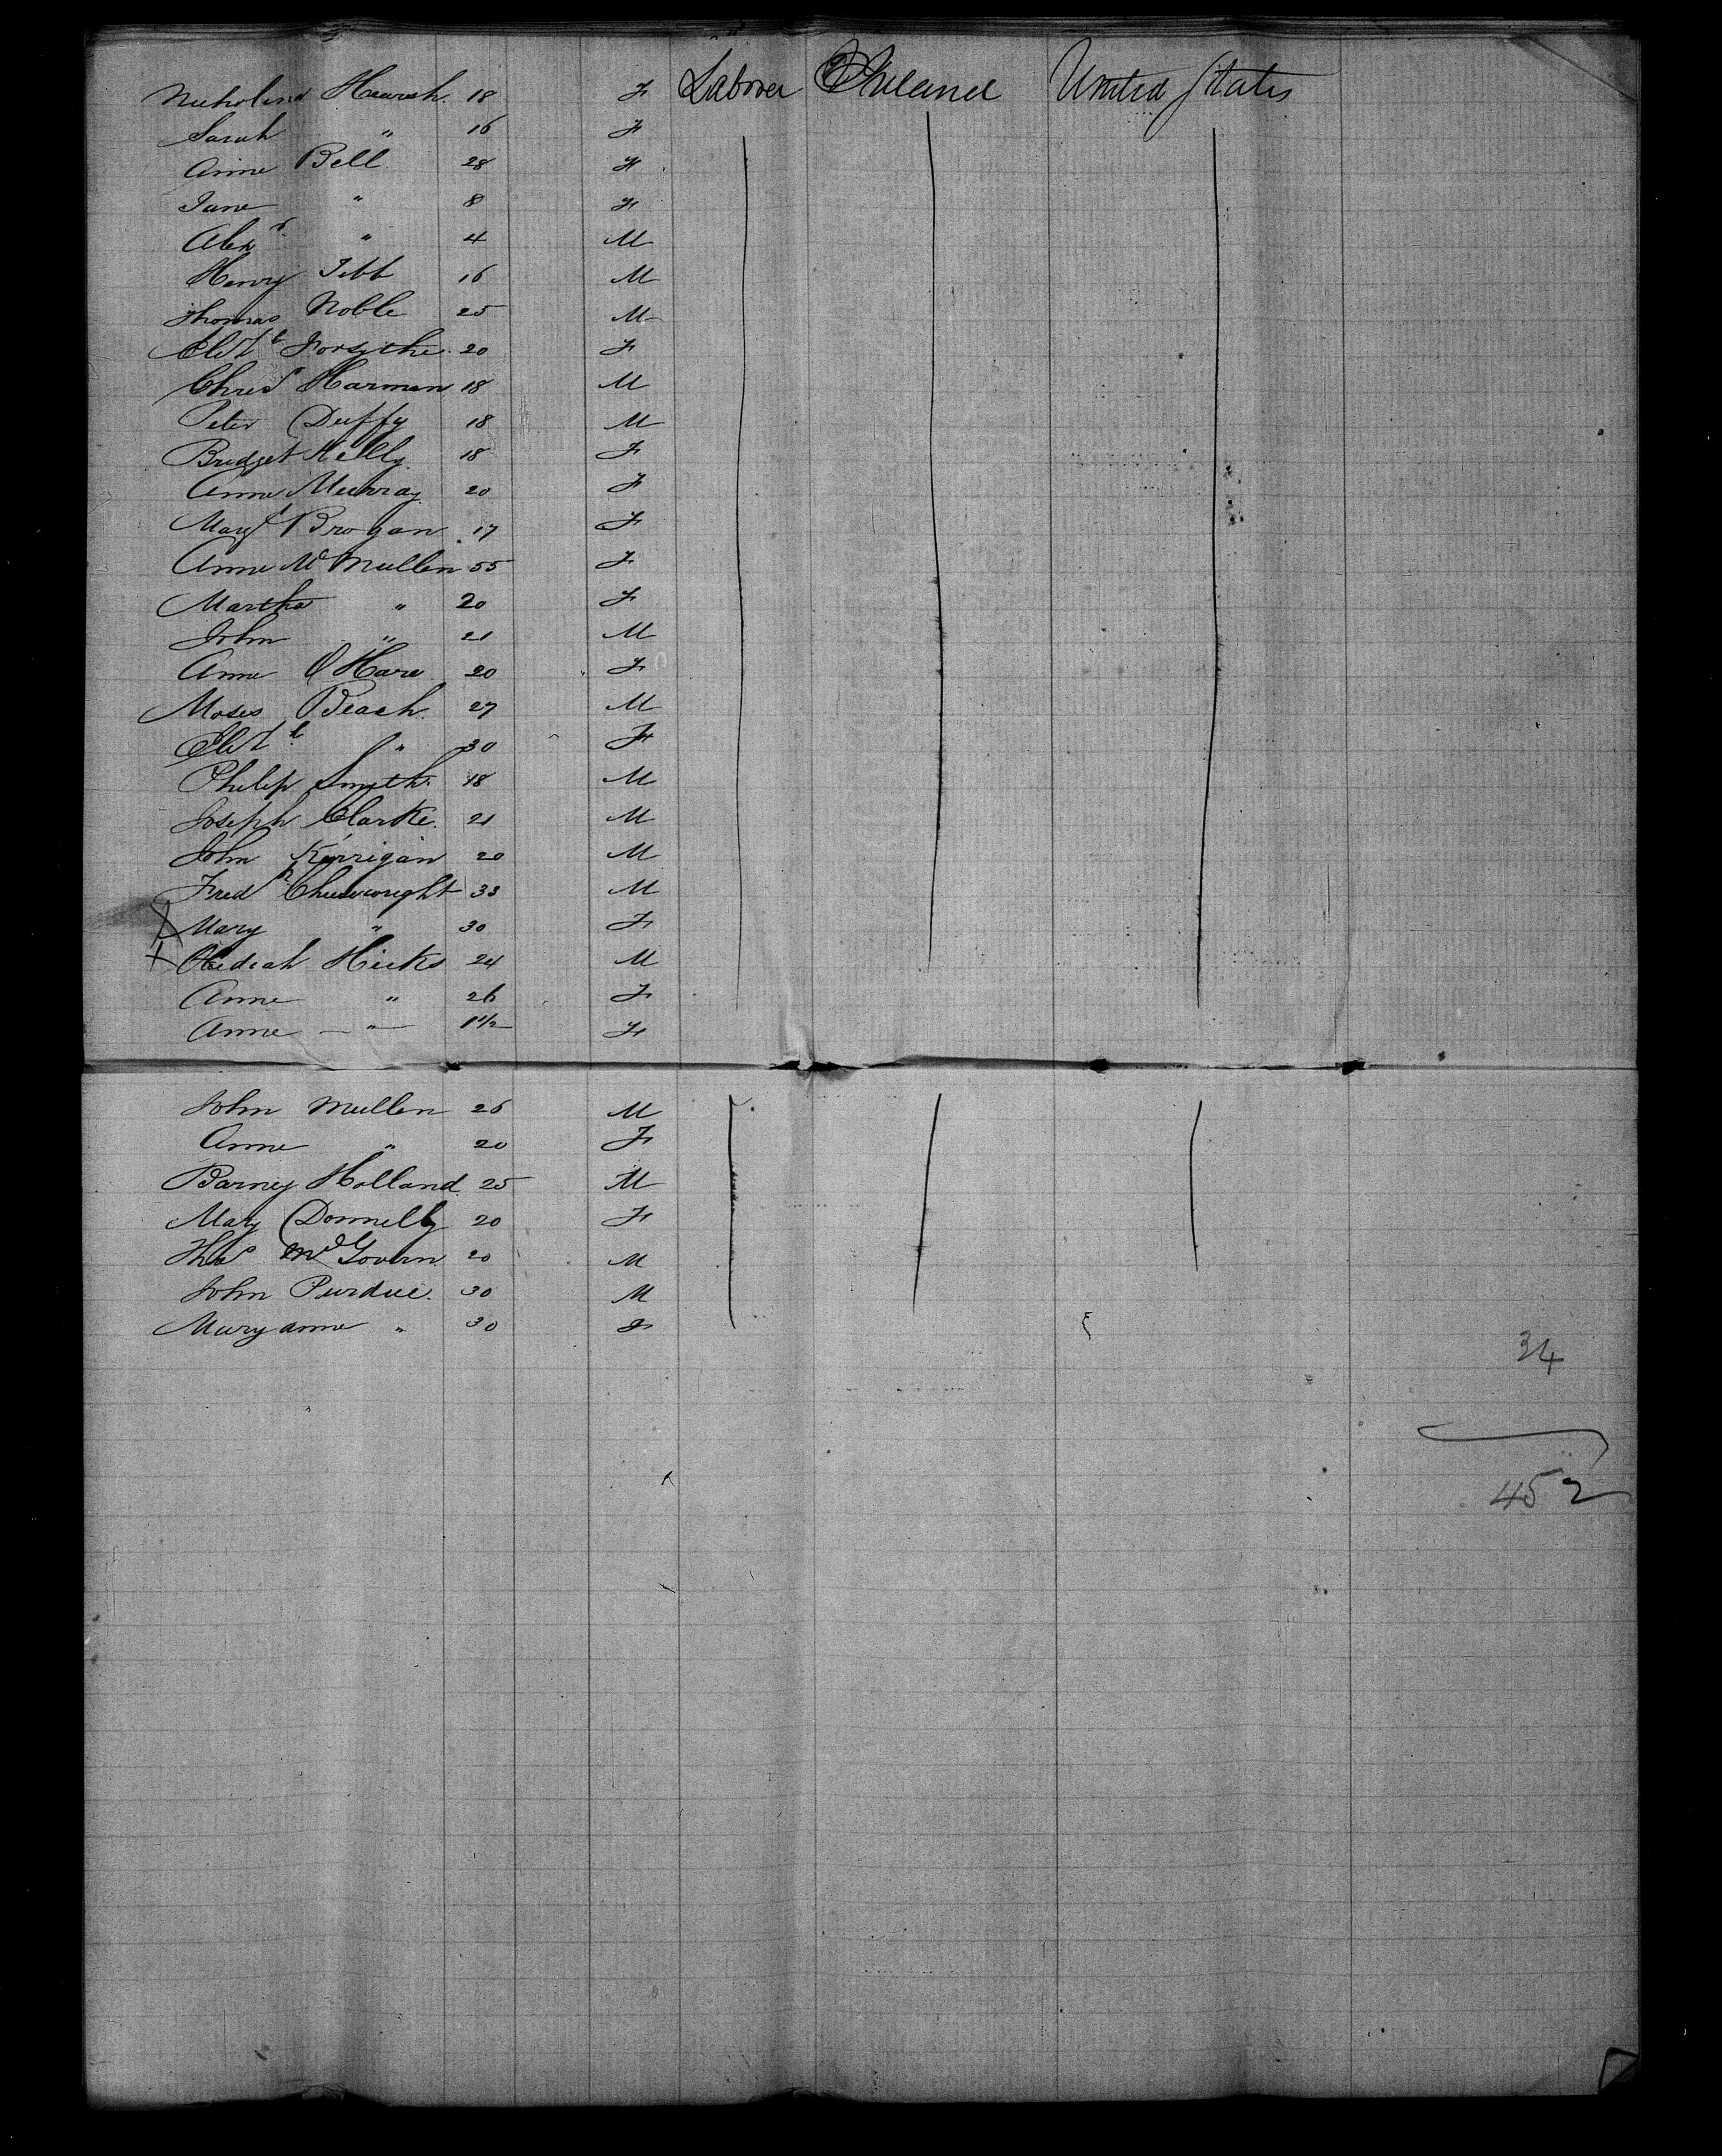 Hearsh. 18 F Laborer Ireland United States
Sarah " 16 F
Anne Bell 28 F
Jane " 8 F
Alexr " 4 M
Henry Tebb 16 M
Thomas Noble 25 M
Elizth Forsythe 20 F
Chris Harman 18 M
Peter Duffy 18 M
Bridget Kelly 18 F
Anne Murray 20 F
Margt Brogan 17 F
Anne McMullen 55 F
Martha " 20 F
John " 21 M
Anne O'Hare 20 F
Moses Beach 27 M
Elizth " 30 F
Philip Smyth 18 M
Joseph Clarke 21 M
John Kerrigan 20 M
Fredk 33 M
X Mary " 30 F
+ Hicks 24 M
Anne " 26 F
Anne — " — 1 1/2 F
John Mullen 26 M
Anne " 20 F
Barney Holland 25 M
Mary Donnelly 20 F
Thos McGovern 20 M
John Purdue 30 M
Maryanne " 30 F
34
452